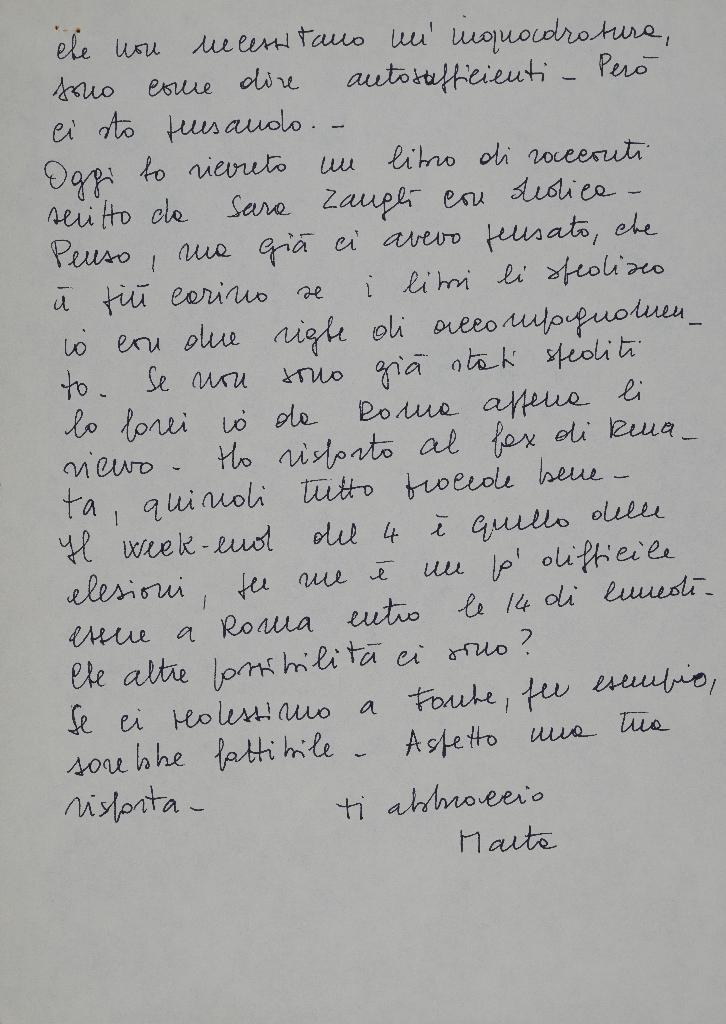 che non necessitano un'inquadratura,
sono come dire autosufficienti - Però
ci sto pensando. -
Oggi ho ricevuto un libro di racconti
scritto da Sara Zanghì con dedica -
Penso, ma già ci avevo pensato, che
è più carino se i libri li spedisco
io con due righe di accompagnamen-
to. Se non sono già stati spediti
lo farei io da Roma appena li
ricevo - Ho risposto al fax di Rena-
ta, quindi tutto procede bene -
Il week-end del 4 è quello delle
elezioni, per me è un po' difficile
essere a Roma entro le 14 di lunedì -
Che altre possibilità ci sono?
Se ci vedessimo a, per esempio,
sarebbe fattibile - Aspetto una tua
risposta -
ti abbraccio
Marta